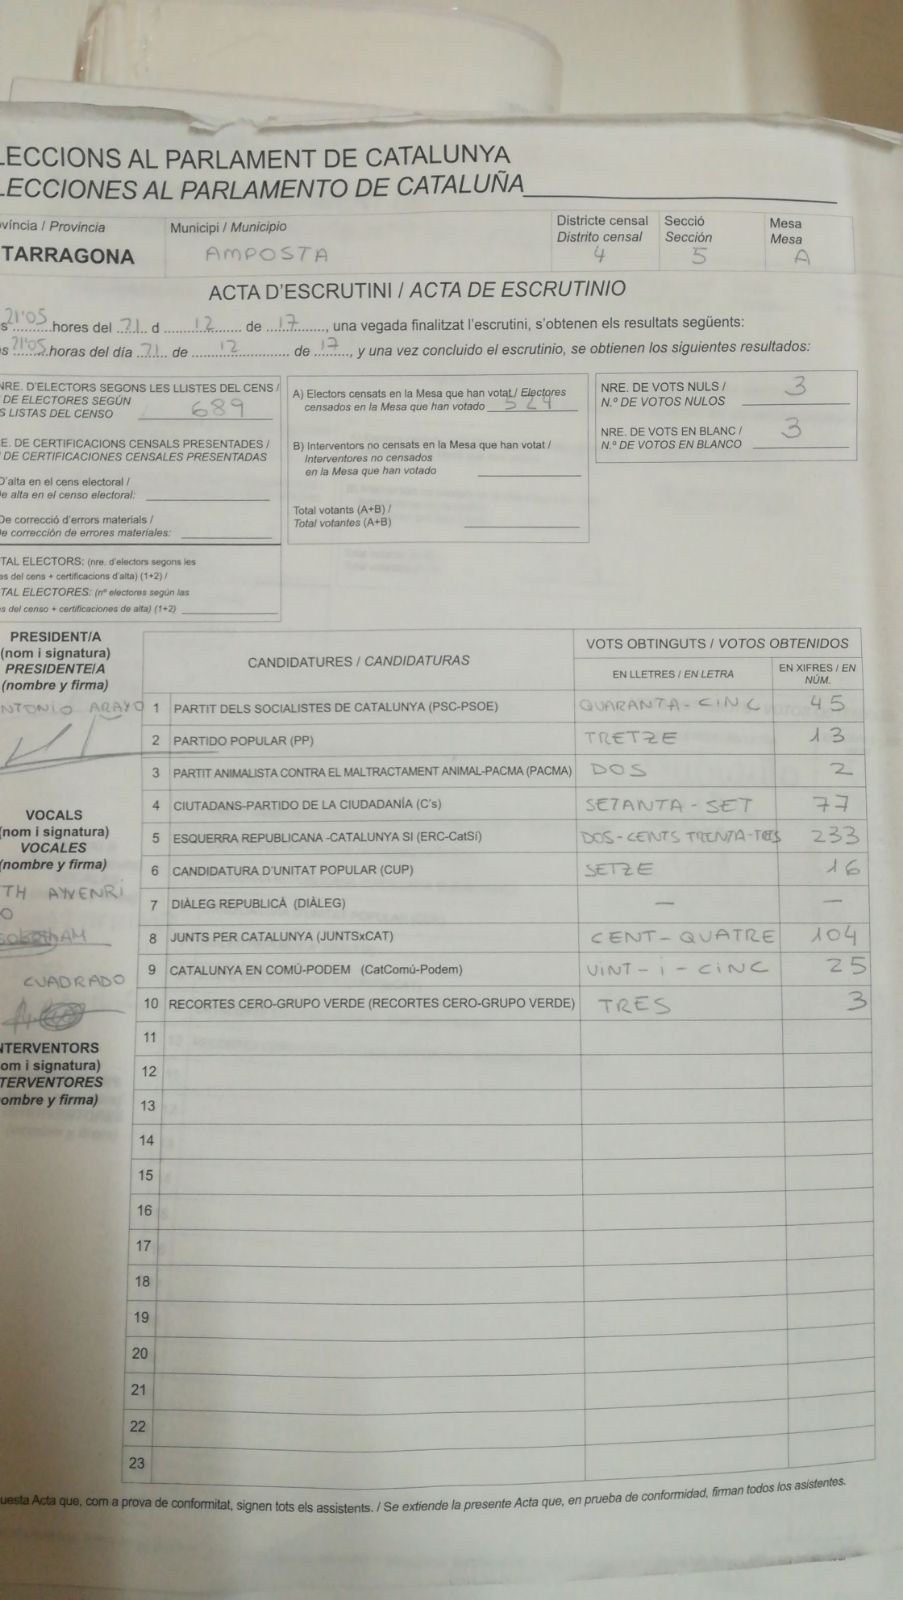 LECCIONS AL PARLAMENT DE CATALUNYA
LECCIONES AL PARLAMENTO DE CATALUÑA
víncia / Provincia
TARRAGONA
Municipi / Municipio
AMPOSTA
Districte censal
Distrito censal
4
Secció
Sección
5
Mesa
Mesa
A
ACTA D'ESCRUTINI / ACTA DE ESCRUTINIO
s 21'05 hores del 21 d 12 de 17, una vegada finalitzat l'escrutini, s'obtenen els resultats següents:
s 21'05 horas del día 21 de 12 de 17, y una vez concluido el escrutinio, se obtienen los siguientes resultados:
NRE. D'ELECTORS SEGONS LES LLISTES DEL CENS /
DE ELECTORES SEGÚN
S LISTAS DEL CENSO 689
E. DE CERTIFICACIONS CENSALS PRESENTADES /
DE CERTIFICACIONES CENSALES PRESENTADAS
D'alta en el cens electoral /
e alta en el censo electoral:
De correcció d'errors materials /
e corrección de errores materiales:
TAL ELECTORS: (nre. d'electors segons les
es del cens + certificacions d'alta) (1+2) /
TAL ELECTORES: (nº electores según las
s del censo + certificaciones de alta) (1+2)
A) Electors censats en la Mesa que han votat / Electores
censados en la Mesa que han votado 524
B) Interventors no censats en la Mesa que han votat /
Interventores no censados
en la Mesa que han votado
Total votants (A+B) /
Total votantes (A+B)
NRE. DE VOTS NULS /
N.º DE VOTOS NULOS 3
NRE. DE VOTS EN BLANC /
N.º DE VOTOS EN BLANCO 3
PRESIDENT/A
(nom i signatura)
PRESIDENTE/A
(nombre y firma)
NTONIO ARAYO
VOCALS
(nom i signatura)
VOCALES
(nombre y firma)
TH
O
CUADRADO
NTERVENTORS
om i signatura)
TERVENTORES
ombre y firma)
CANDIDATURES / CANDIDATURAS
VOTS OBTINGUTS / VOTOS OBTENIDOS
EN LLETRES / EN LETRA
EN XIFRES / EN
NÚM.
1 PARTIT DELS SOCIALISTES DE CATALUNYA (PSC-PSOE) QUARANTA-CINC 45
2 PARTIDO POPULAR (PP) TRETZE 13
3 PARTIT ANIMALISTA CONTRA EL MALTRACTAMENT ANIMAL-PACMA (PACMA) DOS 2
4 CIUTADANS-PARTIDO DE LA CIUDADANÍA (C's) SETANTA-SET 77
5 ESQUERRA REPUBLICANA -CATALUNYA SI (ERC-CatSí) DOS-CENTS TRENTA-TRES 233
6 CANDIDATURA D'UNITAT POPULAR (CUP) SETZE 16
7 DIÀLEG REPUBLICÀ (DIÀLEG) — —
8 JUNTS PER CATALUNYA (JUNTSxCAT) CENT-QUATRE 104
9 CATALUNYA EN COMÚ-PODEM (CatComú-Podem) VINT-I-CINC 25
10 RECORTES CERO-GRUPO VERDE (RECORTES CERO-GRUPO VERDE) TRES 3
11
12
13
14
15
16
17
18
19
20
21
22
23
uesta Acta que, com a prova de conformitat, signen tots els assistents. / Se extiende la presente Acta que, en prueba de conformidad, firman todos los asistentes.